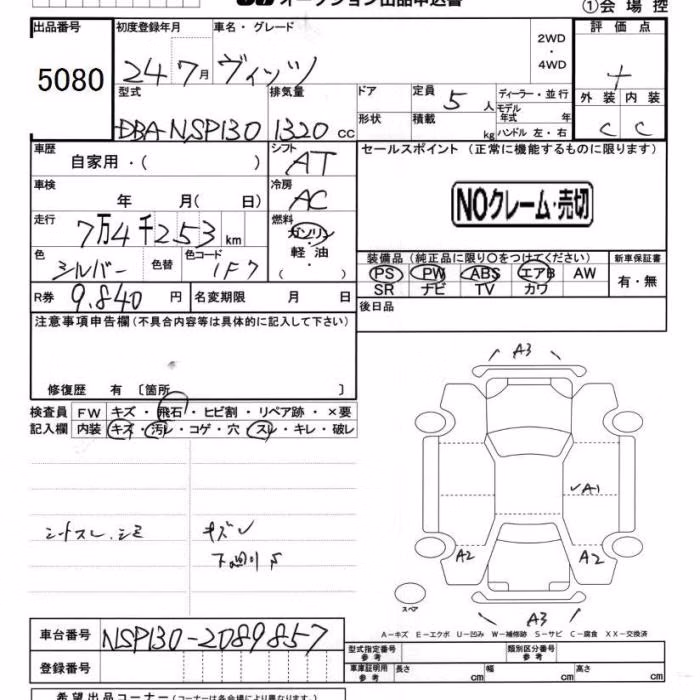 オークション出品申込書
①会場控
出品番号 初度登録年月 車名・グレード 2WD・4WD 評価点
5080 24 7月 ヴィッツ
型式 排気量 ドア 定員 5人 ディーラー・並行 外装 内装
DBA-NSP130 1320cc 形状 積載 kg モデル年式 年 ハンドル 左・右 C C
車歴 シフト セールスポイント (正常に機能するものに限ります)
自家用・( ) AT
車検 冷房
年 月( 日) AC NOクレーム・売切
走行 燃料
7万4千253km ガソリン・軽油・( )
色 色替 色コード 装備品(純正品に限り○をつけてください) 新車保証書
シルバー 1F7 PS PW ABS エアB AW 有・無
SR ナビ TV カワ
R券 9,840円 名変期限 月 日 後日品
注意事項申告欄(不具合内容等は具体的に記入して下さい)
修復歴 有 〔箇所 〕
検査員 FW キズ・飛石・ヒビ割・リペア跡・×要
記入欄 内装 キズ・汚レ・コゲ・穴・スレ・キレ・破レ
A3
A1
シートスレ、シミ キズ
A2 A2
スペア
A3
A-キズ E-エクボ U-凹み W-補修跡 S-サビ C-腐食 XX-交換済
車台番号 NSP130-2089857
型式指定番号 参考 類別区分番号 参考
登録番号 車庫証明用 参考 長さ cm 幅 cm 高さ cm
希望出品コーナー(コーナーは各会場により異なります)